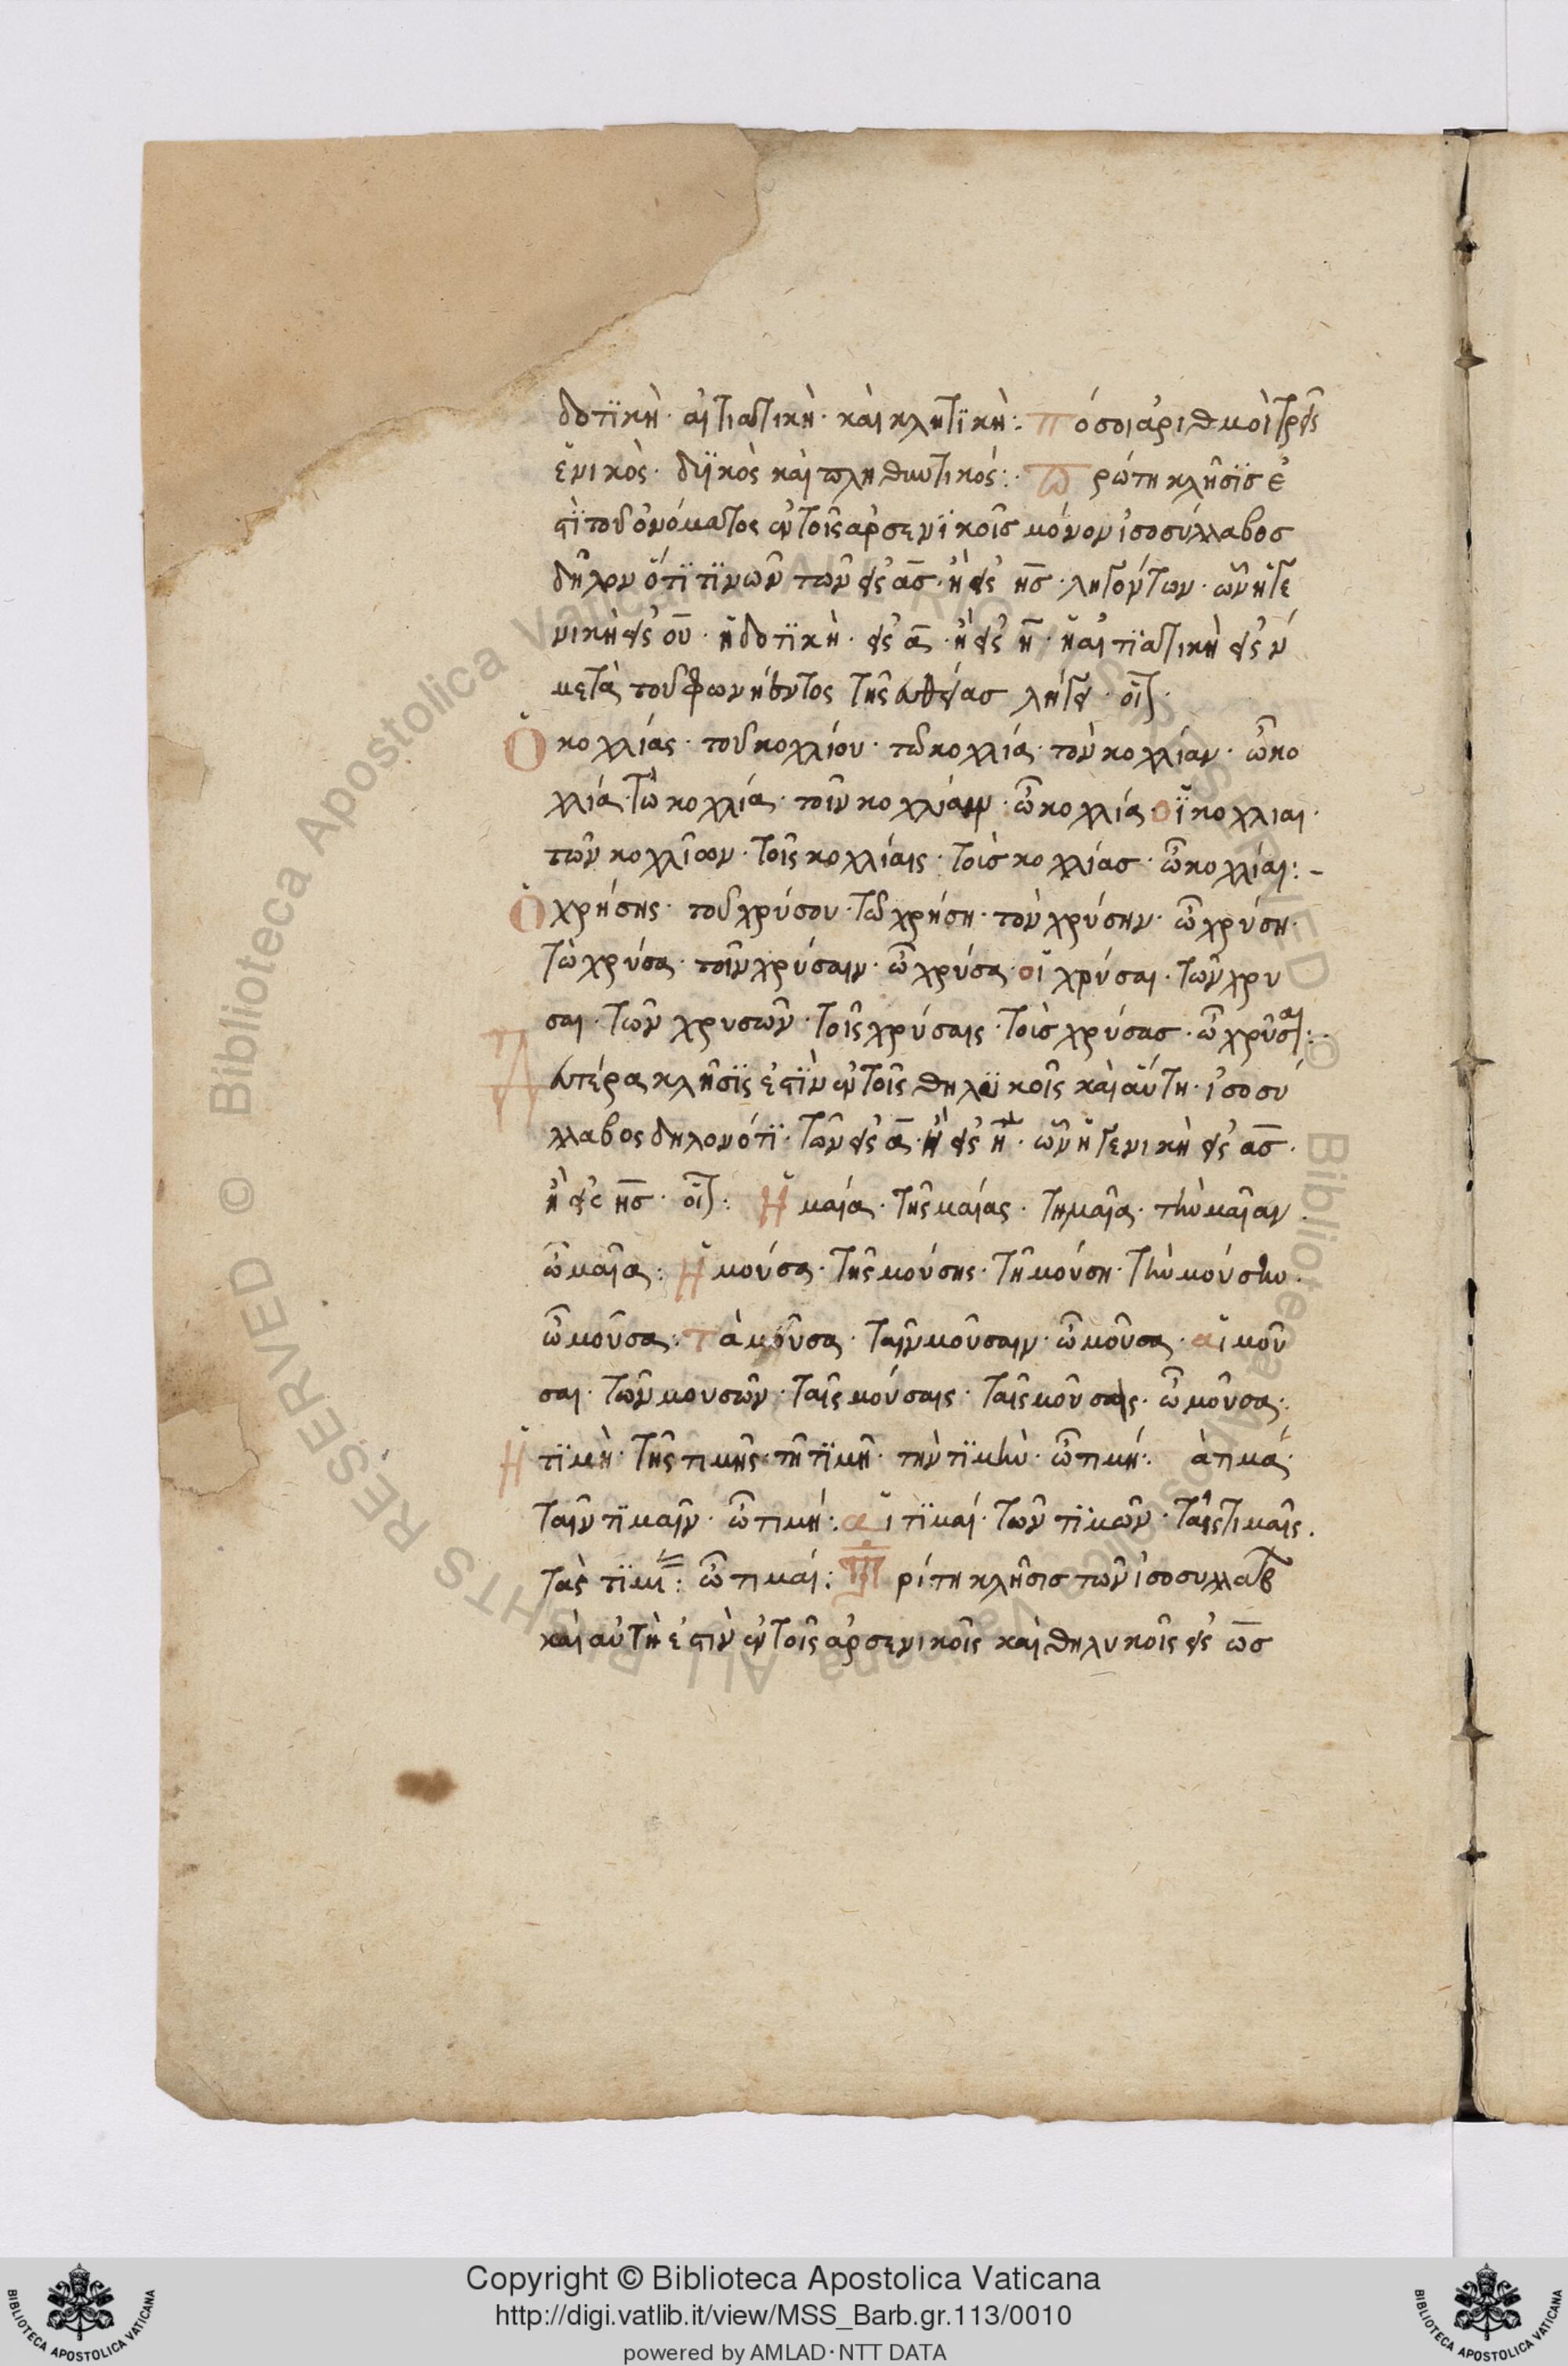 δοτϊκὴ· αἰτιατικὴ· καὶ κλητϊκὴ: Πόσοι ἀριθμοὶ τρεῖς
ἑνικὸς· δϋϊκὸς καὶ πληθυντικός: Πρώτη κλῆσϊς ἐ
στὶ τοῦ ὀνόματος ἐν τοῖς ἀρσενϊκοῖς μόνον ἰσοσύλλαβος
δῆλον ὅτϊ τϊνῶν τῶν εἰς ας· ἢ εἰς ης· ληγόντων· ὧν ἡ γε
νικὴ εἰς ου· ἡ δοτϊκὴ· εἰς α· ἢ εἰς η· ἡ αἰτϊατικὴ εἰς ν
μετὰ τοῦ φωνήεντος τῆς εὐθείας λήγει· οἷον·
Ὁ κοχλίας· τοῦ κοχλίου· τῶ κοχλία· τὸν κοχλίαν· ὦ κο
χλία· τὼ κοχλία· τοῖν κοχλίαιν· ὦ κοχλία· οἱ κοχλιαι·
τῶν κοχλιῶν· τοῖς κοχλίαις· τοὺς κοχλίας· ὦ κοχλίαι:-
Ὁ χρήσης· τοῦ χρύσου· τῶ χρήση· τὸν χρύσην· ὦ χρύση·
τὼ χρύσα· τοῖν χρύσαιν· ὦ χρύσα· οἱ χρύσαι· τῶν χρυ
σαι· τῶν χρυσῶν· τοῖς χρύσαις· τοὺς χρύσας· ὦ χρῦσαι:
Δευτέρα κλῆσϊς ἐστϊν ἐν τοῖς θηλϋκοῖς καὶ αὕτη· ἰσοσύ
λλαβος δηλονότϊ· τῶν εἰς α· ἢ εἰς η· ὧν ἡ γενικὴ εἰς ας·
ἢ εἰς ης· οἷον: Ἡ μαία· τῆς μαίας· τῆ μαῖα· τὴν μαῖαν·
ὦ μαῖα: Ἡ μούσα· τῆς μούσης· τῆ μούση· τὴν μούσην·
ὦ μοῦσα: Τὰ μοῦσα· ταῖν μοῦσαιν· ὦ μοῦσα· αἱ μοῦ
σαι· τῶν μουσῶν· ταῖς μούσαις· ταῖς μοῦσας· ὦ μοῦσα:
Ἡ τϊμὴ· τῆς τιμῆς· τῆ τϊμῆ· τὴν τϊμὴν· ὦ τιμή: ὰ τιμά·
ταῖν τϊμαῖν· ὦ τιμή: αἱ τϊμαί· τῶν τϊμῶν· ταῖς τιμαῖς·
τὰς τϊμὰς: ὦ τιμαί: Τρίτη κλῆσις τῶν ἰσοσυλλάβ
καὶ αὐτὴ ἐστὶν ἐν τοῖς ἀρσενικοῖς καὶ θηλυκοῖς εἰς ως
Copyright © Biblioteca Apostolica Vaticana
http://digi.vatlib.it/view/MSS_Barb.gr.113/0010
powered by AMLAD·NTT DATA